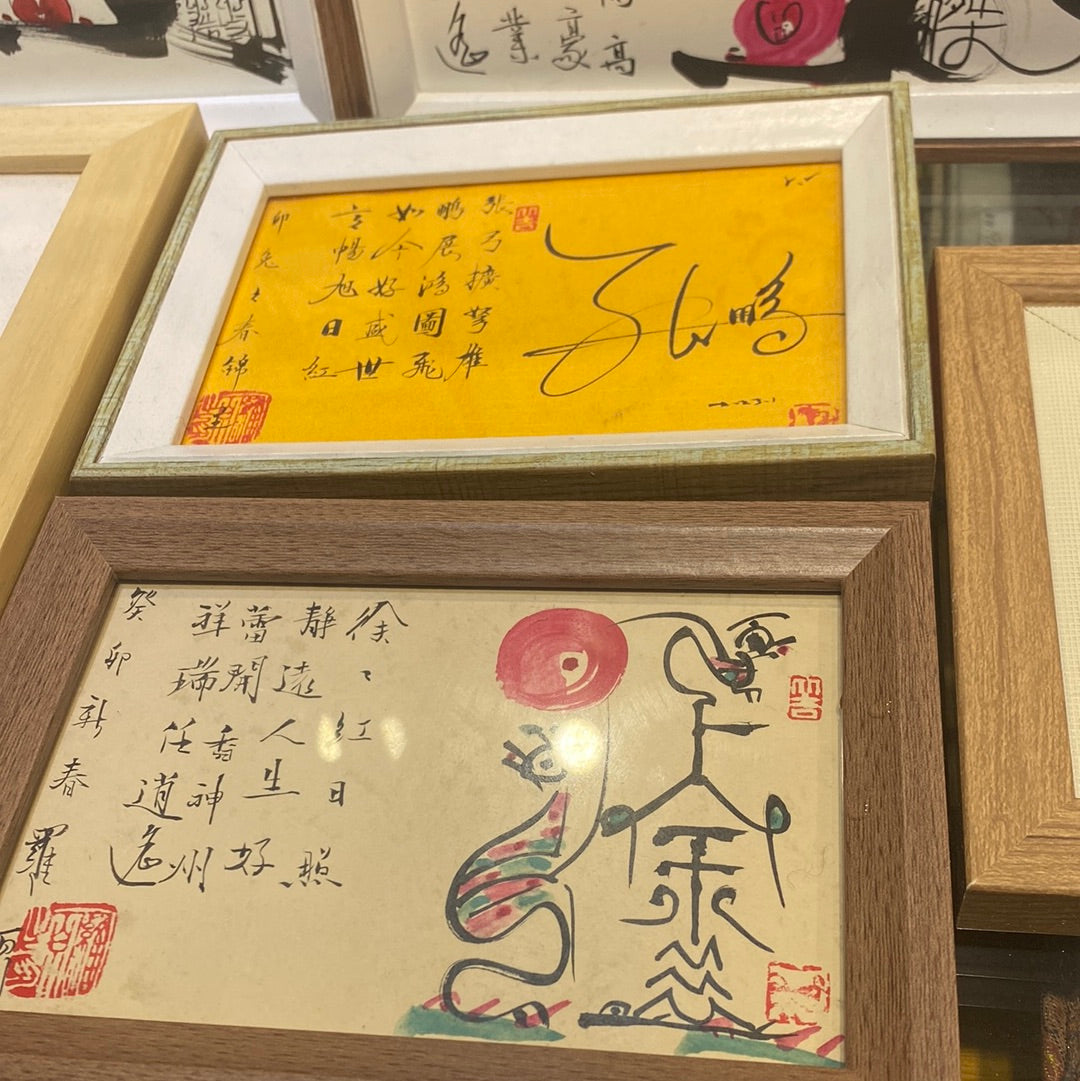 高
高豪
業
遙
傑
張鵬
張弓擴弩雄
鵬展鴻圖飛
如今好盛世
言暢旭日紅
卯兔之春錦
徐〻紅日照
靜遠人生好
蕾開香神州
祥瑞任逍遙
癸卯新春羅